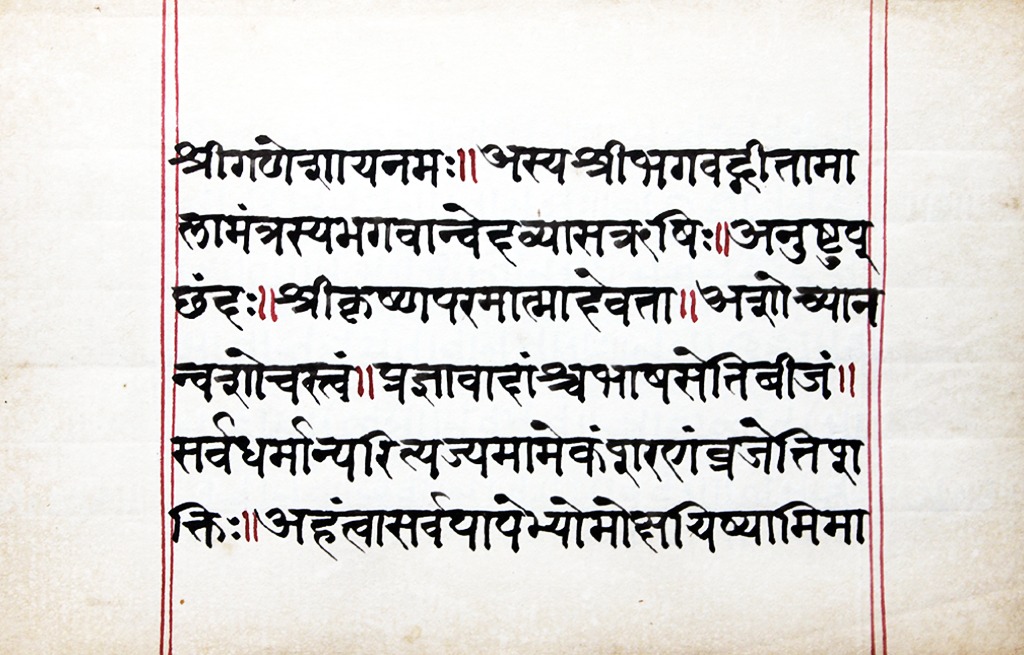 श्रीगणेशायनमः॥अस्यश्रीभगवद्गीतामा
लामंत्रस्यभगवान्वेदव्यासऋषिः॥अनुष्टुप्
छंदः॥श्रीकृष्णपरमात्मादेवता॥अशोच्यान
न्वशोचस्त्वं॥प्रज्ञावादांश्चभाषसेतिबीजं॥
सर्वधर्मान्परित्यज्यमामेकंशरणंव्रजेतिश
क्तिः॥अहंत्वासर्वपापेभ्योमोक्षयिष्यामिमा